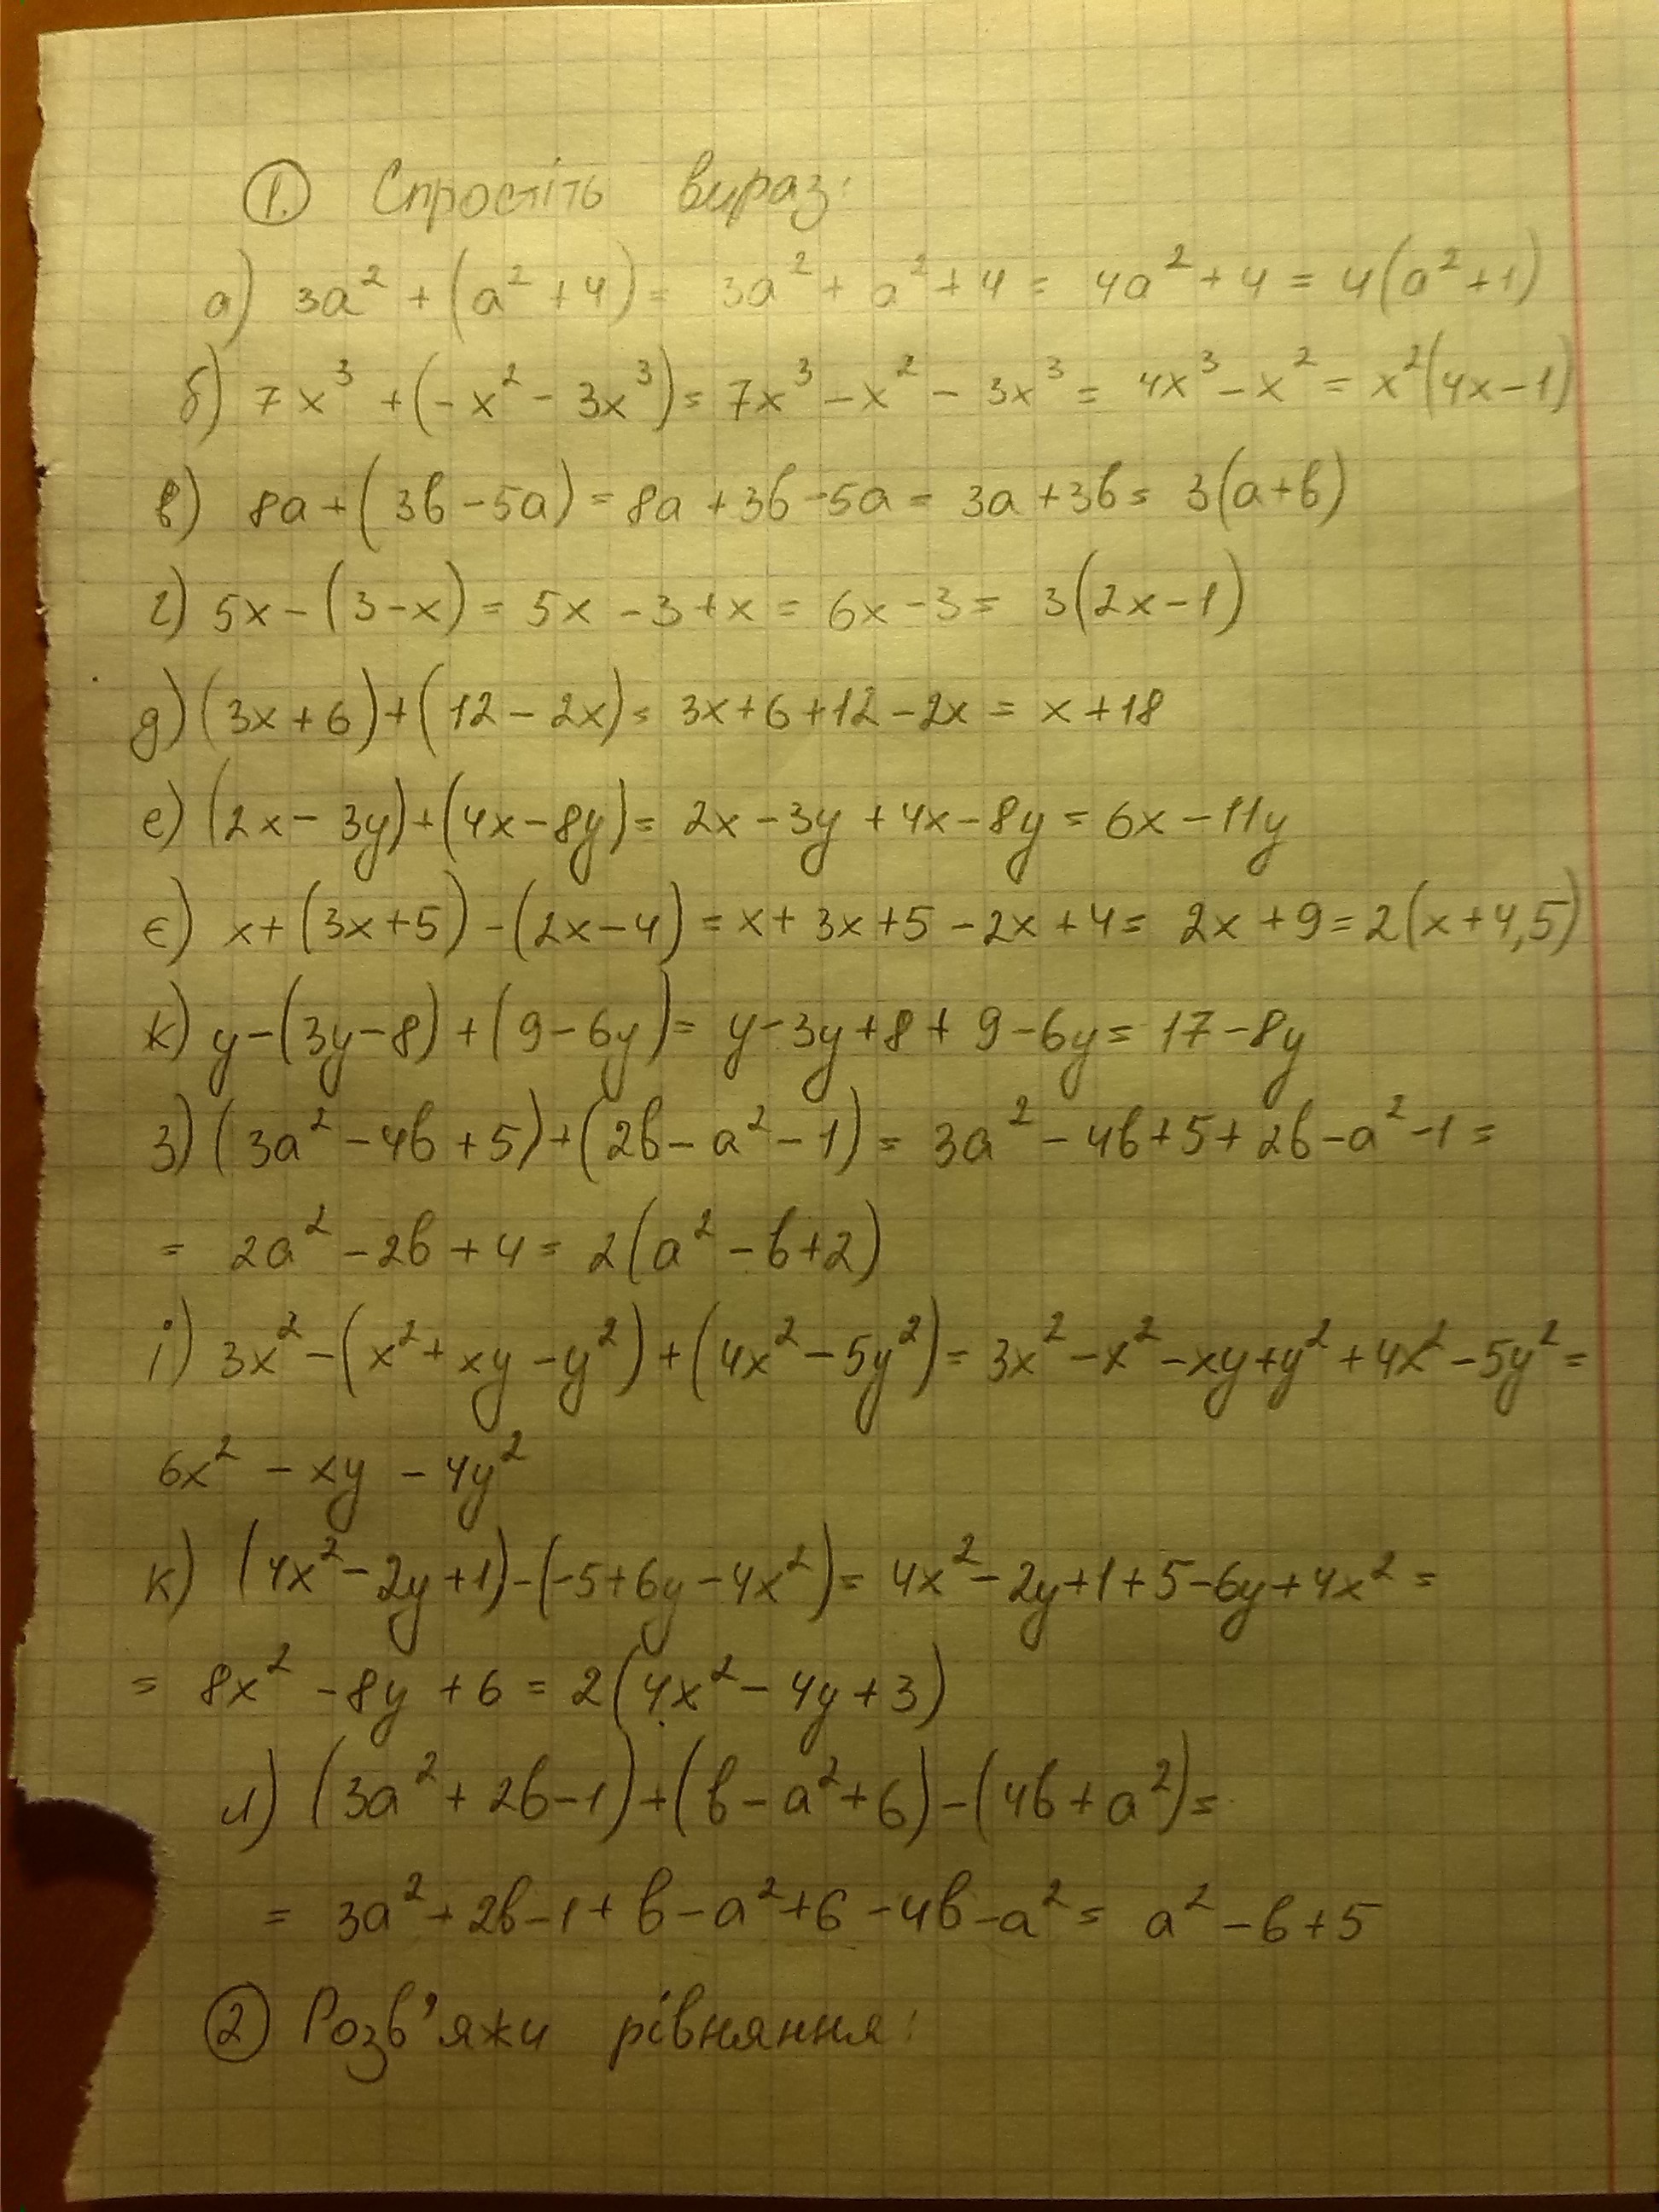 1. Спростіть вираз:
а) 3a² + (a² + 4) = 3a² + a² + 4 = 4a² + 4 = 4(a² + 1)
б) 7x³ + (-x² - 3x³) = 7x³ - x² - 3x³ = 4x³ - x² = x²(4x - 1)
в) 8a + (3b - 5a) = 8a + 3b - 5a = 3a + 3b = 3(a + b)
г) 5x - (3 - x) = 5x - 3 + x = 6x - 3 = 3(2x - 1)
д) (3x + 6) + (12 - 2x) = 3x + 6 + 12 - 2x = x + 18
е) (2x - 3y) + (4x - 8y) = 2x - 3y + 4x - 8y = 6x - 11y
є) x + (3x + 5) - (2x - 4) = x + 3x + 5 - 2x + 4 = 2x + 9 = 2(x + 4,5)
ж) y - (3y - 8) + (9 - 6y) = y - 3y + 8 + 9 - 6y = 17 - 8y
з) (3a² - 4b + 5) + (2b - a² - 1) = 3a² - 4b + 5 + 2b - a² - 1 =
= 2a² - 2b + 4 = 2(a² - b + 2)
і) 3x² - (x² + xy - y²) + (4x² - 5y²) = 3x² - x² - xy + y² + 4x² - 5y² =
6x² - xy - 4y²
к) (4x² - 2y + 1) - (-5 + 6y - 4x²) = 4x² - 2y + 1 + 5 - 6y + 4x² =
= 8x² - 8y + 6 = 2(4x² - 4y + 3)
л) (3a² + 2b - 1) + (b - a² + 6) - (4b + a²) =
= 3a² + 2b - 1 + b - a² + 6 - 4b - a² = a² - b + 5
2 Розв'яжи рівняння: